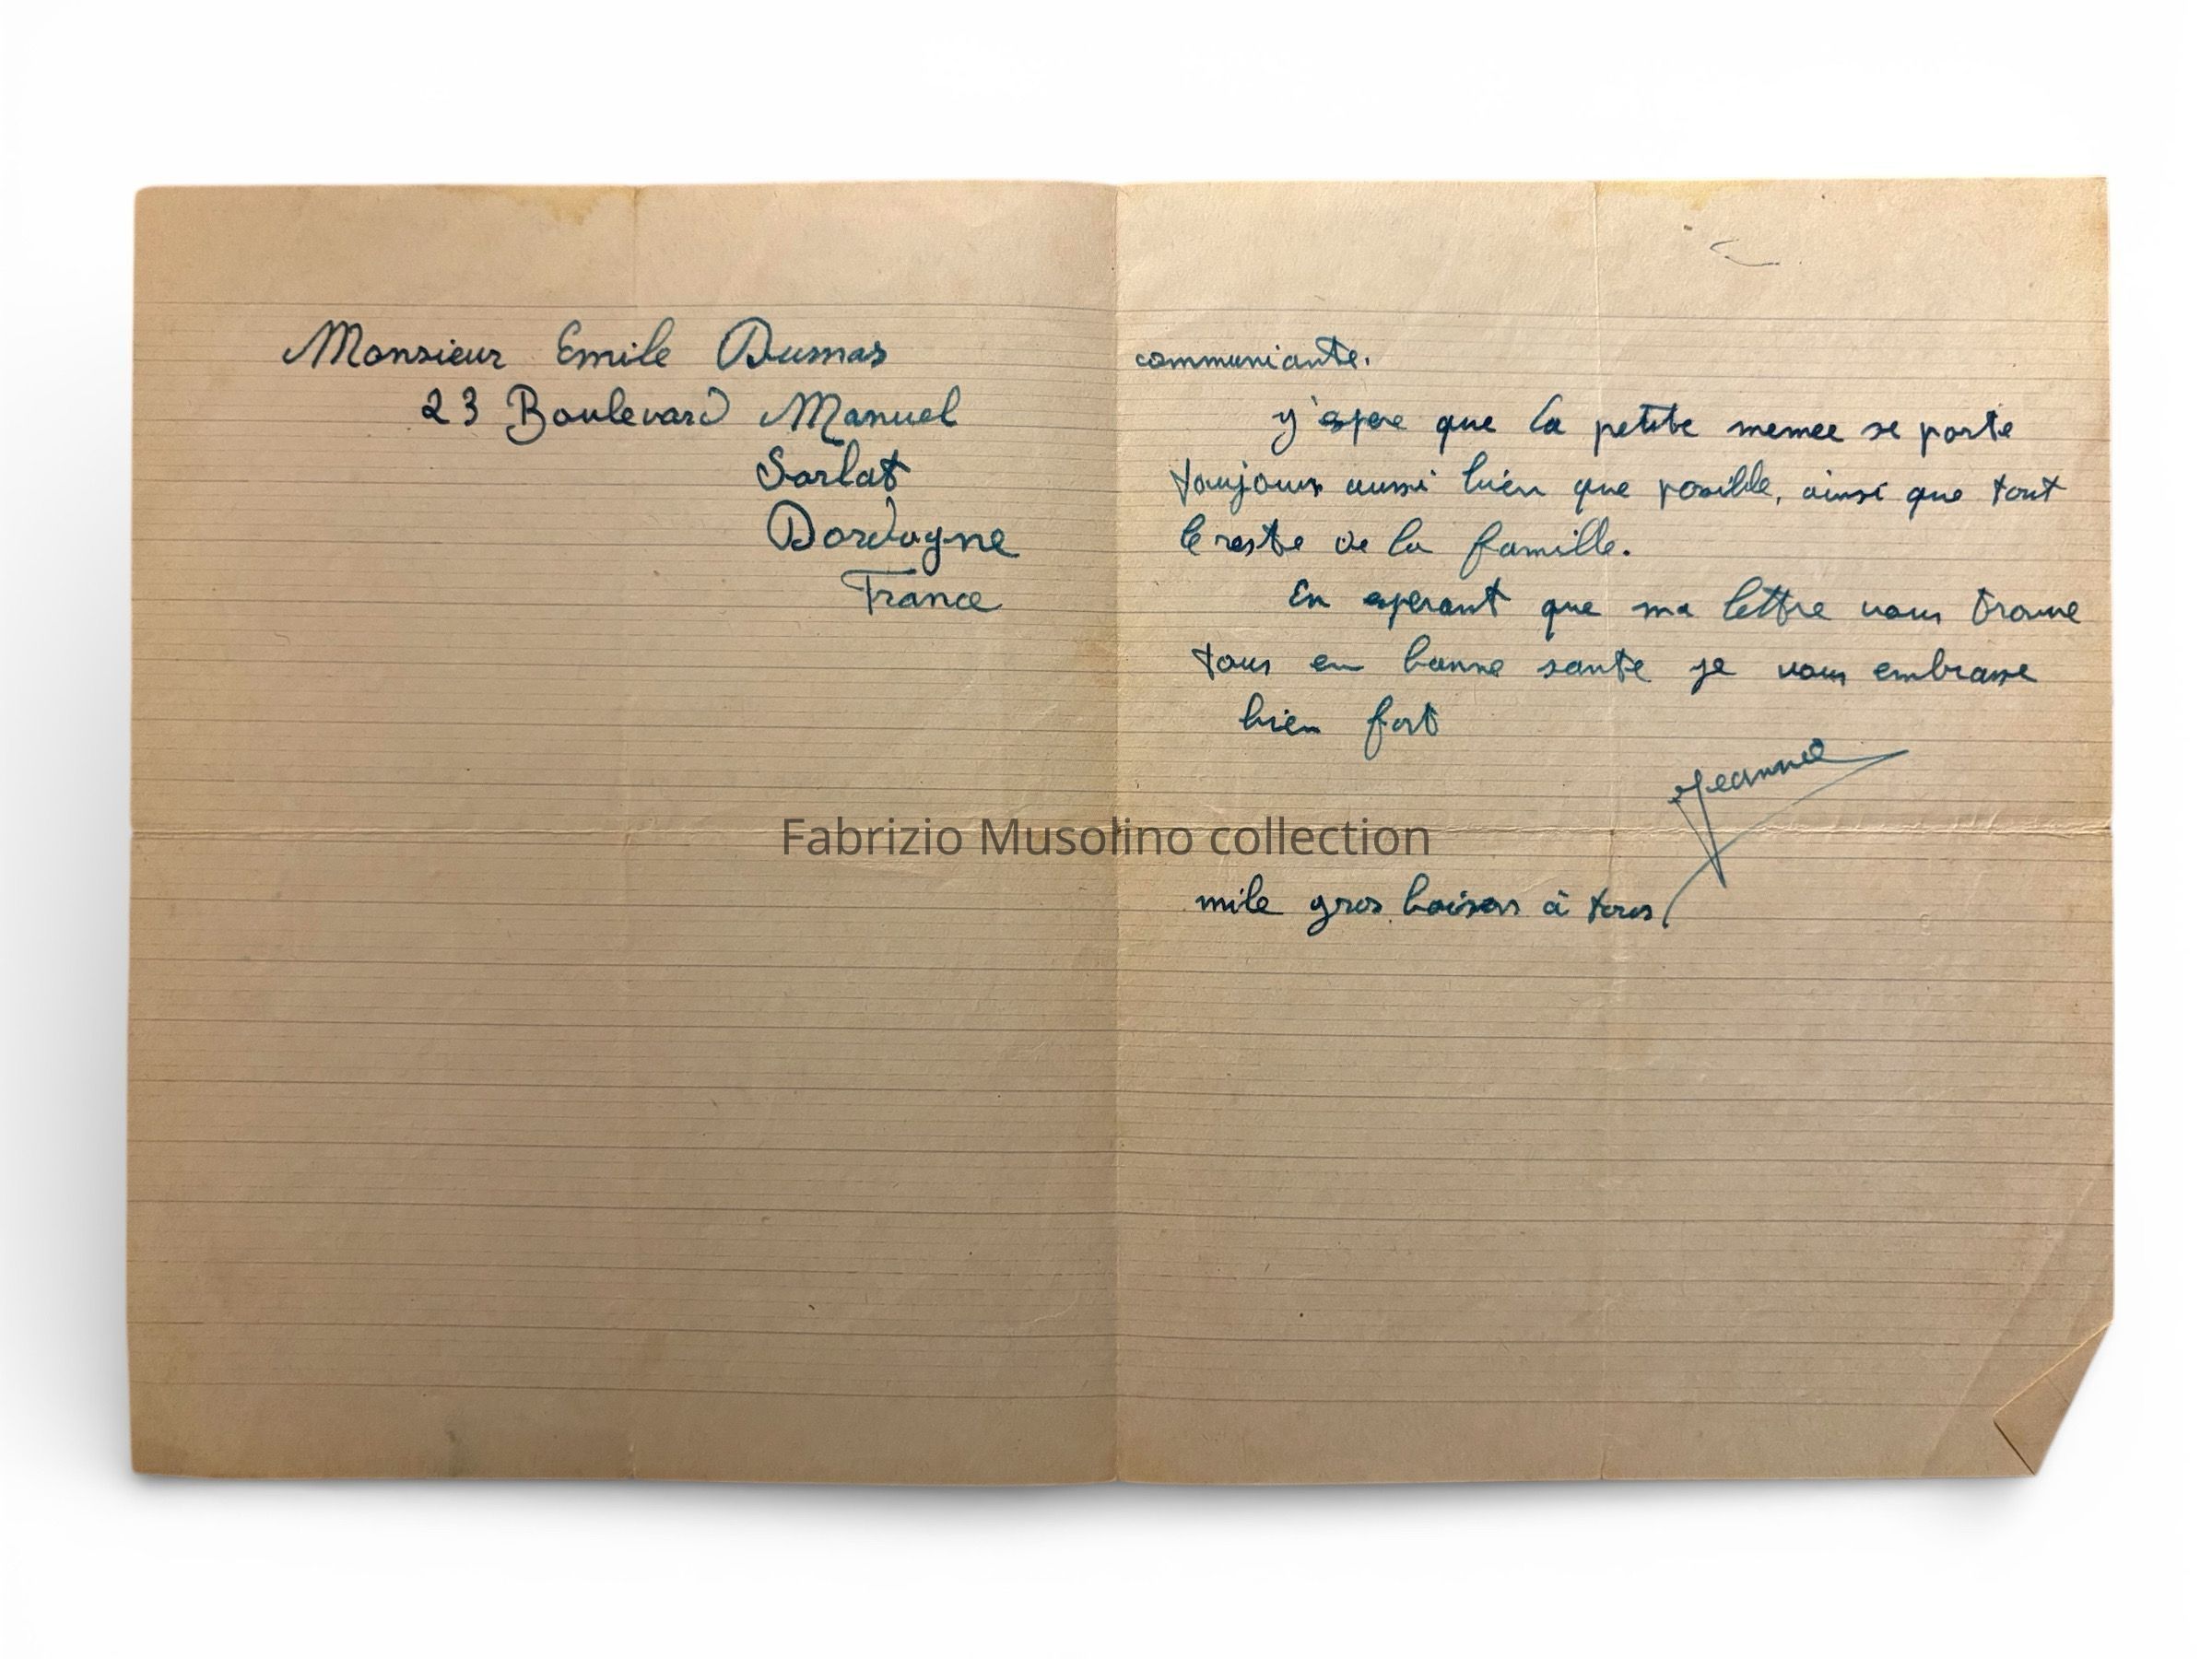 Monsieur Emile Dumas
23 Boulevard Manuel
Sarlat
Dordogne
France
communiante.
y'espere que la petite memee se porte
toujours aussi bien que posible, ainsi que tout
le reste de la famille.
En esperant que ma lettre vous trouve
tous en bonne sante je vous embrasse
bien fort
Jeanne
Fabrizio Musolino collection
mile gros baisers à tous